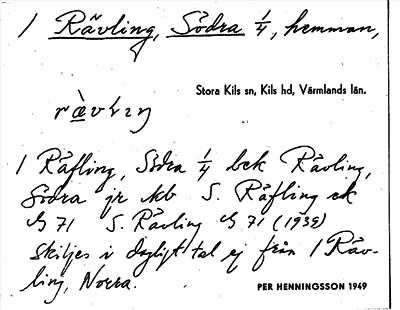 1 Rävling, Södra 1/4, hemman,
Stora Kils sn, Kils hd, Värmlands län.
1 Räfling, Södra 1/4 bek Rävling,
Södra jr kb S. Räfling ek
71 S. Rävling 71 (1939)
skiljes i dagligt tal ej från 1 Räv-
ling, Norra.
PER HENNINGSSON 1949